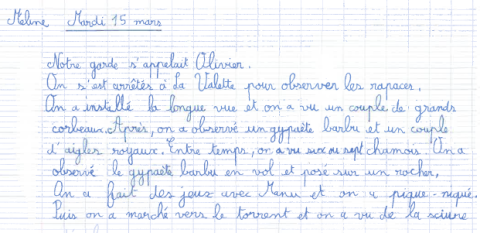 Méline Mardi 15 mars
Notre garde s'appelait Olivier.
On s'est arrêtés à La Valette pour observer les rapaces.
On a installé la longue vue et on a vu un couple de grands
corbeaux. Après, on a observé un gypaète barbu et un couple
d'aigles royaux. Entre temps, on a vu six ou sept chamois. On a
observé le gypaète barbu en vol et posé sur un rocher.
On a fait des jeux avec Manu et on a pique-niqué.
Puis on a marché vers le torrent et on a vu de la sciure